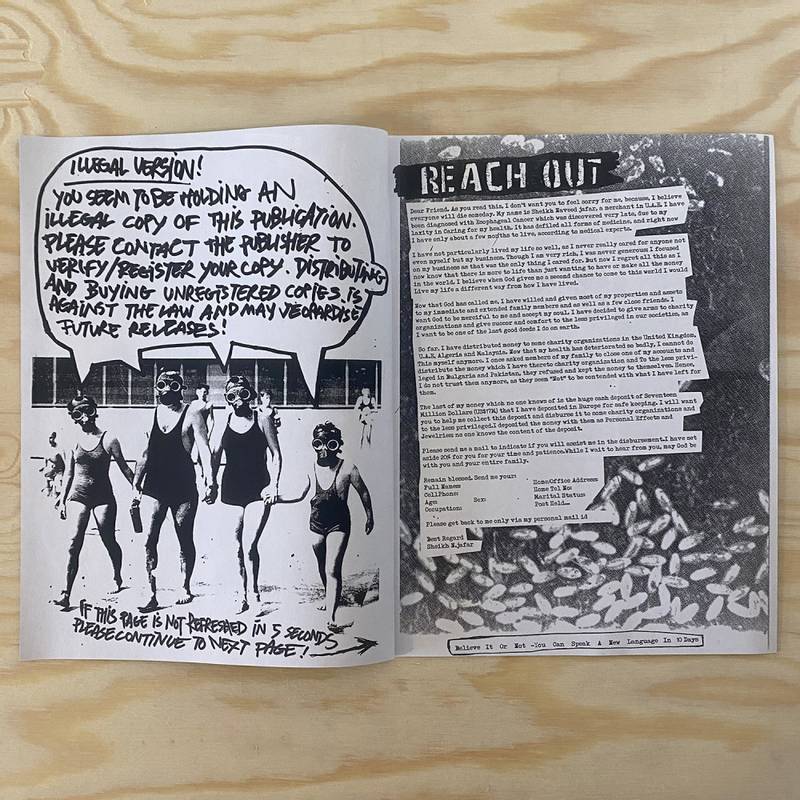 ILLEGAL VERSION!
YOU SEEM TO BE HOLDING AN
ILLEGAL COPY OF THIS PUBLICATION.
PLEASE CONTACT THE PUBLISHER TO
VERIFY/REGISTER YOUR COPY. DISTRIBUTING
AND BUYING UNREGISTERED COPIES IS
AGAINST THE LAW AND MAY JEOPARDISE
FUTURE RELEASES!
IF THIS PAGE IS NOT REFRESHED IN 5 SECONDS
PLEASE CONTINUE TO NEXT PAGE!
REACH OUT
Dear Friend. As you read this, I don't want you to feel sorry for me, because, I believe
everyone will die someday. My name is Sheikh Naveed jafar, a merchant in U.A.E. I have
been diagnosed with Esophageal Cancer which was discovered very late, due to my
laxity in Caring for my health. It has defiled all forms of medicine, and right now
I have only about a few months to live, according to medical experts.
I have not particularly lived my life so well, as I never really cared for anyone not
even myself but my business. Though I am very rich, I was never generous I focused
on my business as that was the only thing I cared for. But now I regret all this as I
now know that there is more to life than just wanting to have or make all the money
in the world. I believe when God gives me a second chance to come to this world I would
Live my life a different way from how I have lived.
Now that God has called me, I have willed and given most of my properties and assets
to my immediate and extended family members and as well as a few close friends. I
want God to be merciful to me and accept my soul. I have decided to give arms to charity
organizations and give succor and comfort to the less privileged in our societies, as
I want to be one of the last good deeds I do on earth.
So far, I have distributed money to some charity organizations in the United Kingdom,
U.A.E, Algeria and Malaysia. Now that my health has deteriorated so badly, I cannot do
This myself anymore. I once asked members of my family to close one of my accounts and
distribute the money which I have there to charity organization and To the less privi-
leged in Bulgaria and Pakistan, they refused and kept the money to themselves. Hence,
I do not trust them anymore, as they seem "Not" to be contended with what I have left for
them.
The last of my money which no one knows of is the huge cash deposit of Seventeen
Million Dollars (US$17M) that I have deposited in Europe for safe keeping. I will want
you to help me collect this deposit and disburse it to some charity organizations and
to the less privileged. I deposited the money with them as Personal Effects and
Jewelries; no one knows the content of the deposit.
Please send me a mail to indicate if you will assist me in the disbursement. I have set
aside 20% for you for your time and patience. While I wait to hear from you, may God be
with you and your entire family.
Remain blessed. Send me your:
Full Names:
CellPhone:
Age: Sex:
Occupation:
Home/Office Address:
Home Tel No:
Marital Status:
Post Held....
Please get back to me only via my personal mail id
Best Regard
Sheikh N.jafar
Believe It Or Not -You Can Speak A New Language In 10 Days